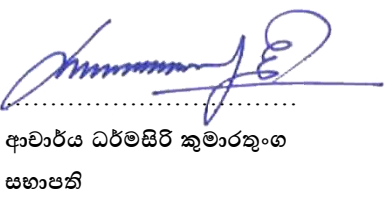 ආචාර්ය ධර්මසිරි කුමාරතුංග
සභාපති